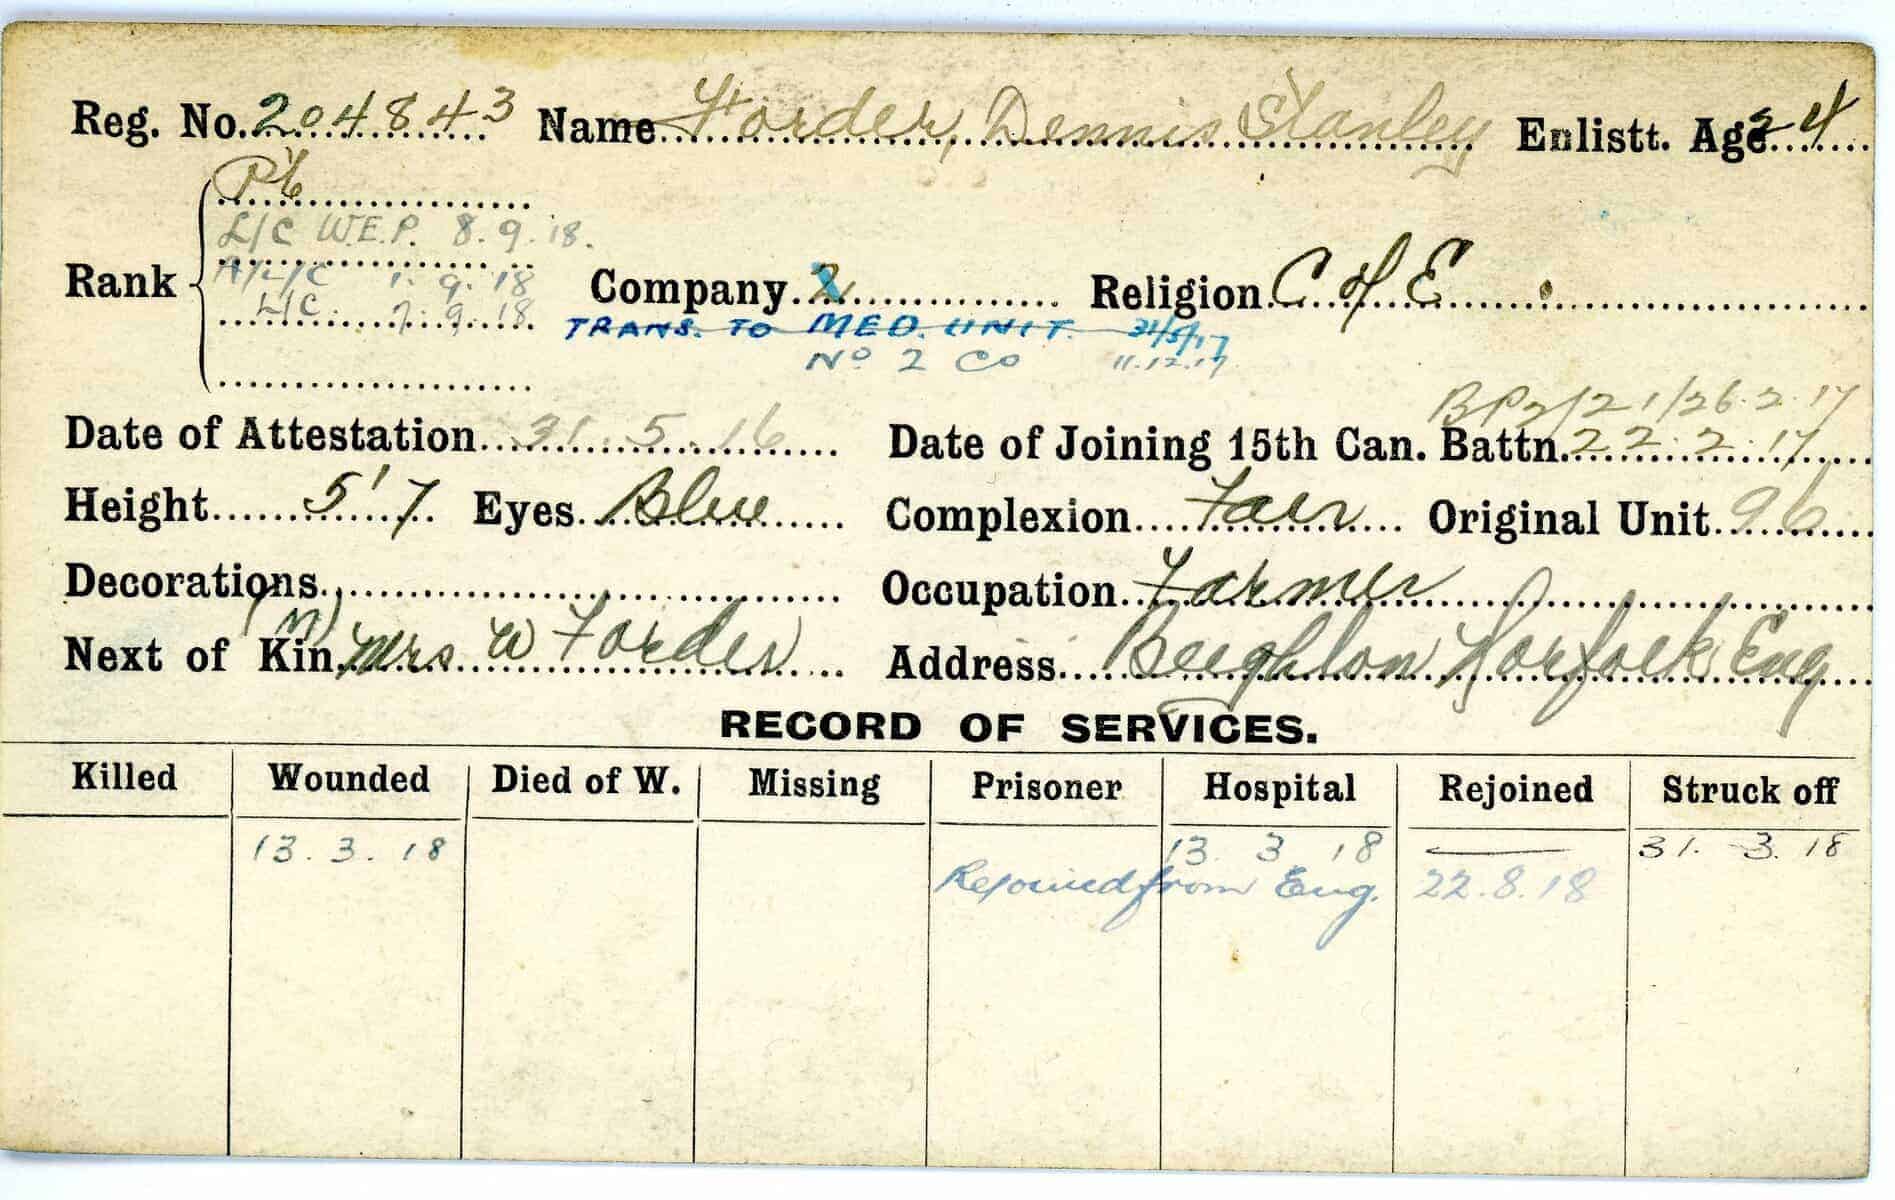 Reg. No. 204843 Name Forder, Dennis Stanley Enlistt. Age 24
Pte
L/C W.E.P. 8.9.18.
Rank A/L/C 1.9.18 Company 2 Religion C of E
L/C 7.9.18
TRANS. TO MED. UNIT. 31/5/17
No 2 Co 11.12.17
BP2/21/26.2.17
Date of Attestation 31.5.16 Date of Joining 15th Can. Battn. 22.2.17
Height 5'7 Eyes Blue Complexion Fair Original Unit 96
Decorations Occupation Farmer
(m)
Next of Kin Mrs W Forder Address Beighton Norfolk Eng
RECORD OF SERVICES.
Killed Wounded Died of W. Missing Prisoner Hospital Rejoined Struck off
13.3.18 13.3.18 31.3.18
Rejoined from Eng. 22.8.18